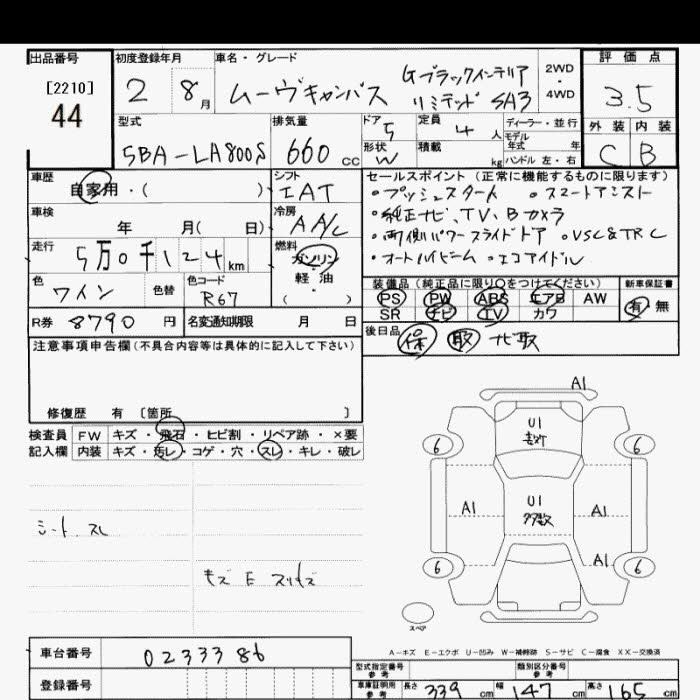 出品番号
[2210]
44
初度登録年月
2 8月
車名・グレード
ムーヴキャンバス Gブラックインテリア
リミテッド SA3
2WD
・
4WD
評価点
3.5
外装 内装
C B
型式
5BA-LA800S
排気量
660 cc
ドア
5
形状
W
定員
4 人
積載
kg
ディーラー・並行
モデル
年式 年
ハンドル 左・右
車歴
自家用・( )
シフト
IAT
車検
年 月( 日)
冷房
AA/C
走行
5万0千124km
燃料
ガソリン
軽・油
( )
色
ワイン
色替
色コード
R67
R券 8790 円
名変通知期限 月 日
セールスポイント(正常に機能するものに限ります)
・プッシュスタート ・スマートアシスト
・純正ナビ、TV、Bカメラ
・両側パワースライドドア ・VSC&TRC
・オートハイビーム ・エコアイドル
装備品(純正品に限り○をつけてください)
新車保証書
PS PW ABS エアB AW
SR ナビ TV カワ
有 無
後日品
保 取 ナビ取
注意事項申告欄(不具合内容等は具体的に記入して下さい)
修復歴 有 [箇所 ]
検査員
記入欄
FW キズ・飛石・ヒビ割・リペア跡・×要
内装 キズ・汚レ・コゲ・穴・スレ・キレ・破レ
シート スレ
キズ E
A1
U1
6
6
A1
U1
多数
A1
A1
6
6
スペア
A-キズ E-エクボ U-凹み W-補修跡 S-サビ C-腐食 XX-交換済
車台番号
0233386
登録番号
型式指定番号
参考
類別区分番号
参考
車庫証明用
参考
長さ 339 cm 幅 147 cm 高さ 165 cm